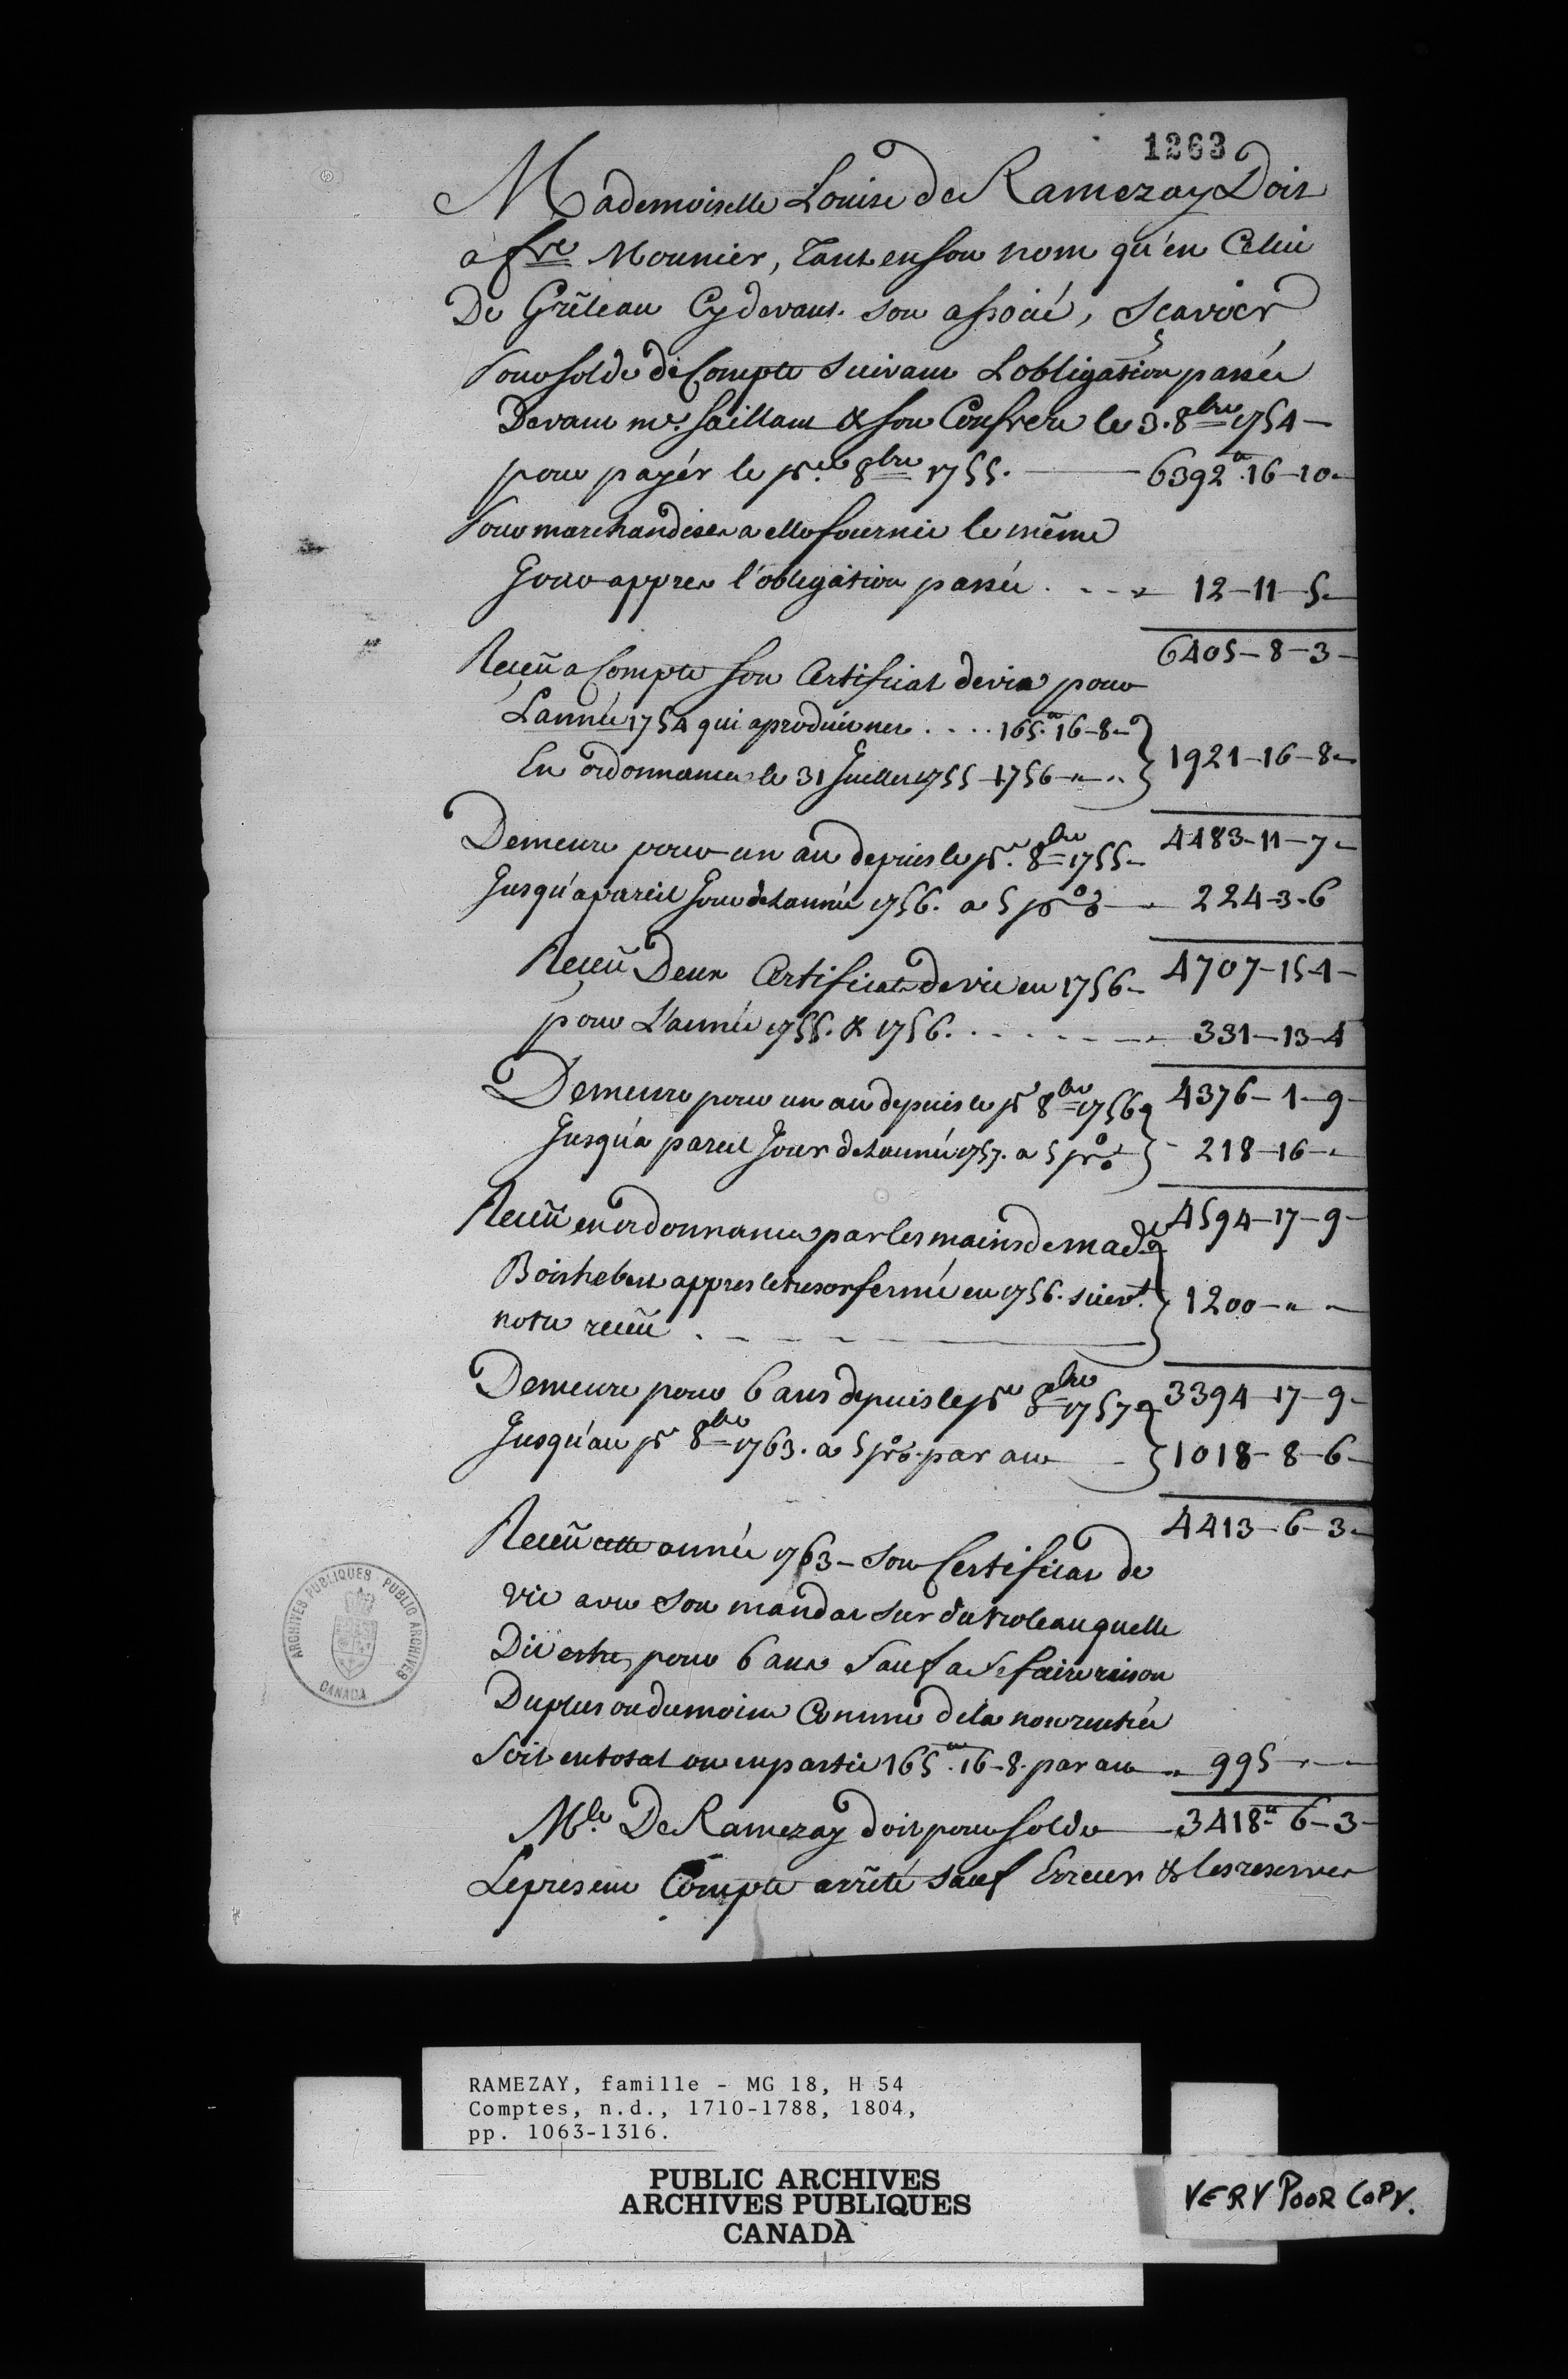 1263
Mademoiselle Louise de Ramezay Doit
a fre Mounier, Tant en son nom qu'en Celui
De Grêleau Cydevant son associé, Sçavoir
Pour solde de Compte suivant Lobligation passée
Devant me. Saillant & son Confrere le 3. 8bre 1754 —
pour payér le pr. 8bre 1755. — 6392tt.16-10-
Pour marchandises a elle fournie le même
Jour appres l'obligation passée . . . 12-11-5-
6405-8-3-
Reçeu a Compte son Certificat de vie pour
Lannée 1754 qui a produit net . . . . 165tt.16-8-
En ordonnances le 31 Juillet 1755 - 1756 - " - " } 1921-16-8-
Demeure pour un an depuis le pr. 8bre 1755- 4483-11-7-
Jusqu'a pareil Jour de Lannée 1756. a 5 pr % - 224-3-6
Reçeu Deux Certificats de vie en 1756- 4707-15-1-
pour L'année 1755. & 1756. . . . . 331-13-4
Demeure pour un an depuis le pr 8bre 1756 4376-1-9-
Jusqu'a pareil Jour de Lannée 1757. a 5 pr % } - 218-16-"
4594-17-9-
Reçeu en ordonnances par les mains de made
Boishebert appres le tresor fermé en 1756. suivt. } 1200-"-
notre reçeu . - - -
Demeure pour 6 ans depuis le pr 8bre 1757 3394-17-9-
Jusqu'au pr 8bre 1763. a 5 pr %. par an - } 1018-8-6-
4413-6-3-
Reçeu cette année 1763 - son Certificat de
vie avec son mandat sur dutroleau quelle
Dit estre, pour 6 ans Sauf a Se faire raison
Du plus ou du moins Comme de la non rentrée
Soit en total ou en partie 165tt.16-8. par an - 995-"-
Mlle De Ramezay doit pour solde - 3418tt-6-3-
Le présent Compte arrêté sauf Erreur & les reserves
ARCHIVES PUBLIQUES PUBLIC ARCHIVES
CANADA
RAMEZAY, famille - MG 18, H 54
Comptes, n.d., 1710-1788, 1804,
pp. 1063-1316.
PUBLIC ARCHIVES
ARCHIVES PUBLIQUES
CANADA
VERY POOR COPY.